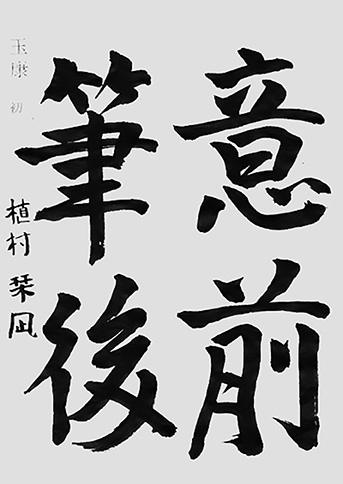 意前
筆後
植村 栞凪
玉康 初